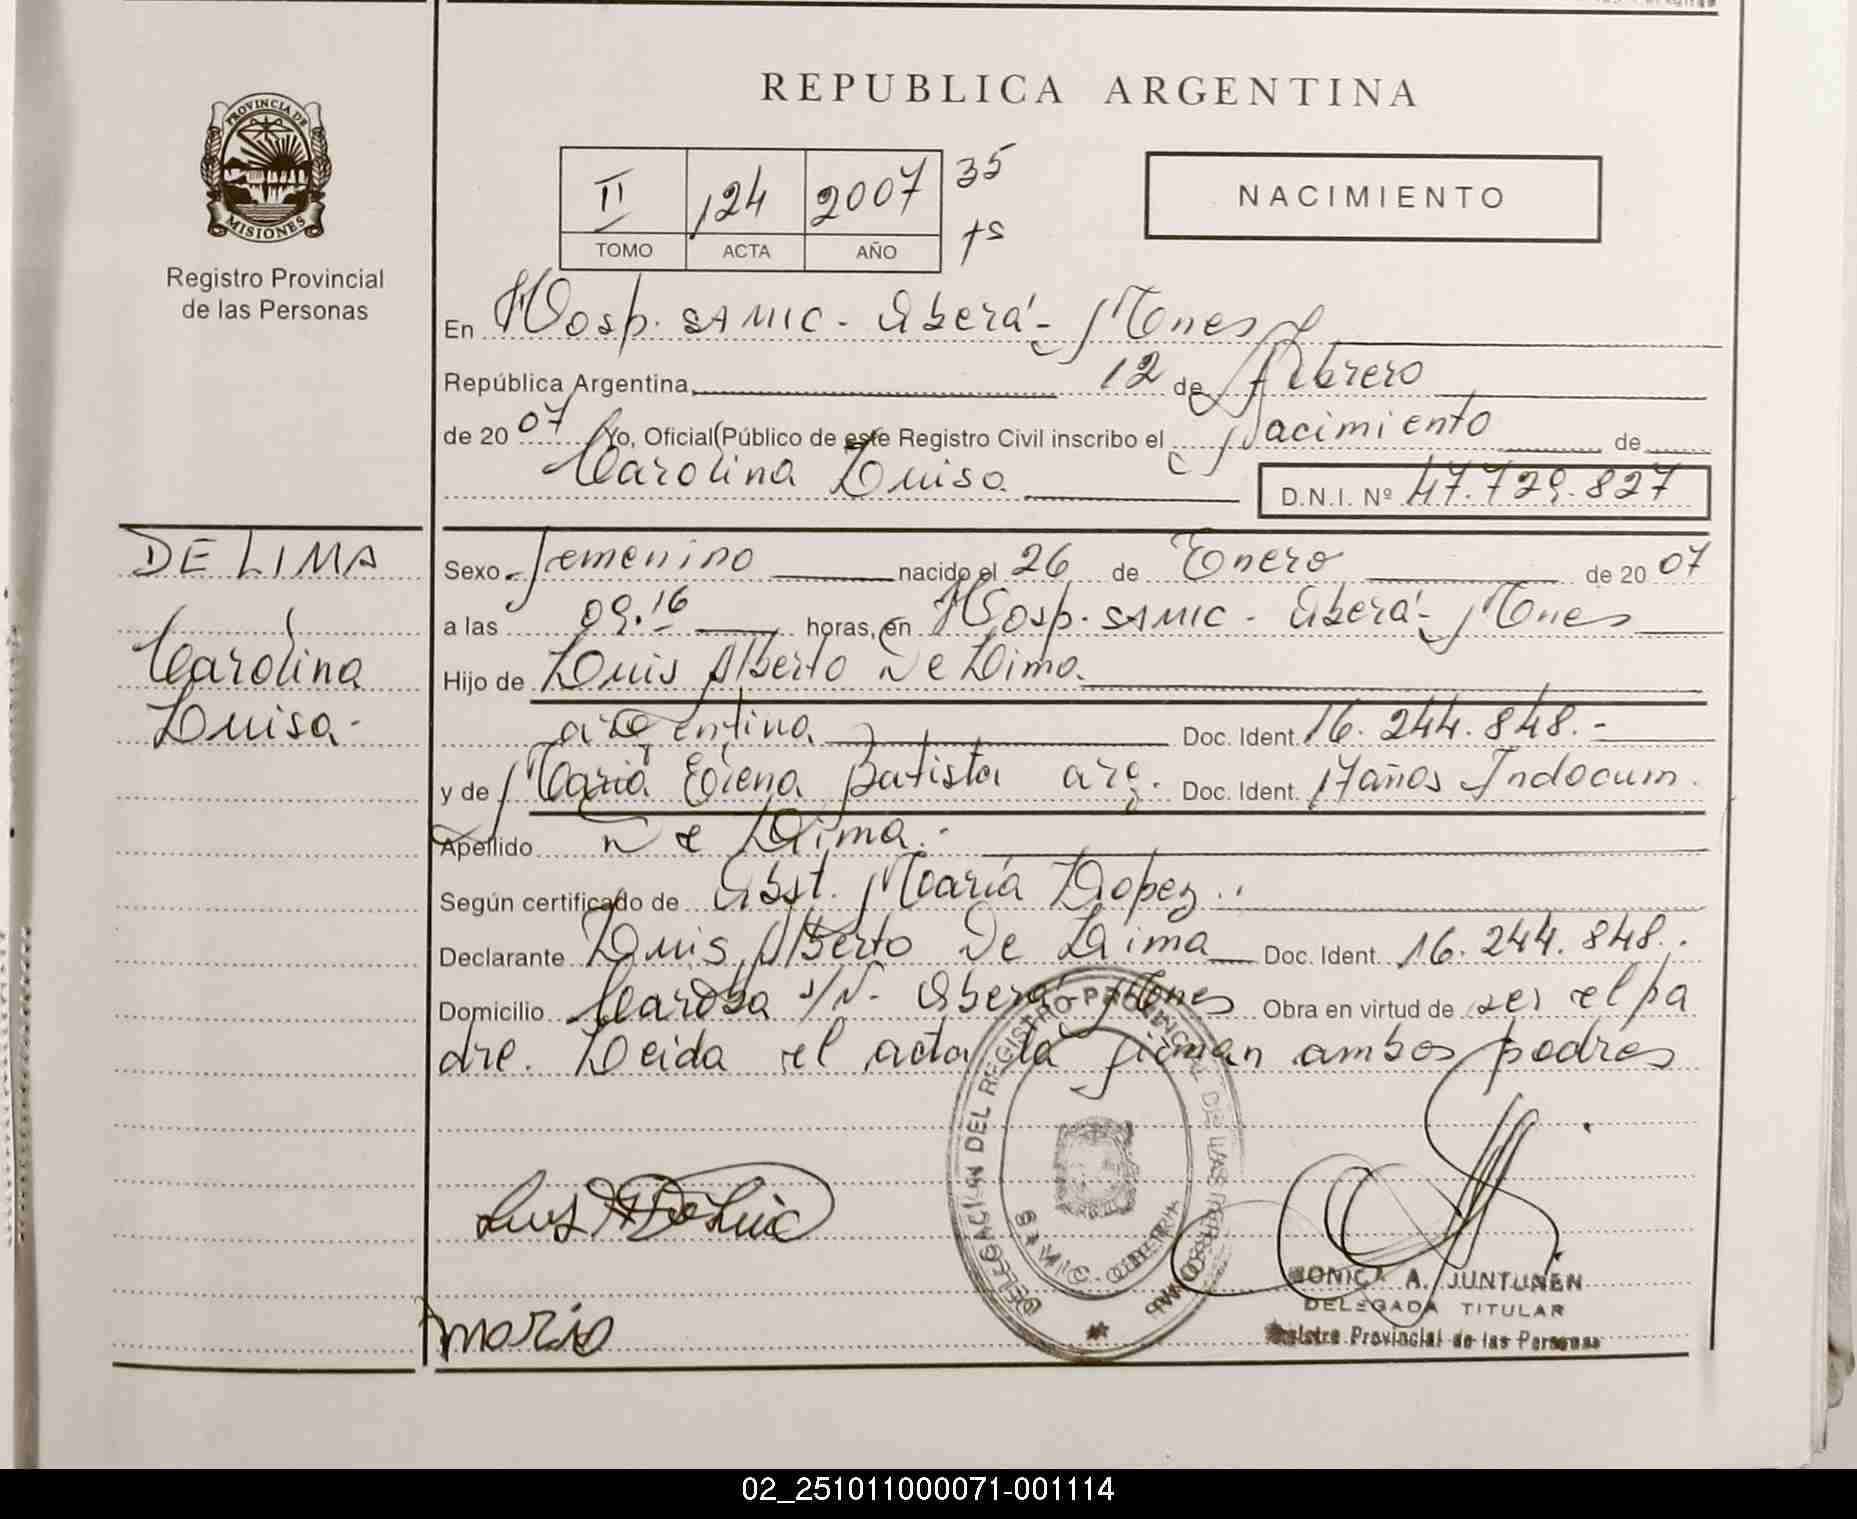 REPUBLICA ARGENTINA
PROVINCIA DE MISIONES
Registro Provincial
de las Personas
II 124 2007 35
TOMO ACTA AÑO
NACIMIENTO
En Hosp. SAMIC - Oberá - Mnes
República Argentina, 12 de Febrero
de 2007 Yo, Oficial Público de este Registro Civil inscribo el Nacimiento de
Carolina Luisa D.N.I. Nº 47.729.827
DE LIMA
Carolina
Luisa.-
Sexo Femenino nacido el 26 de Enero de 2007
a las 09.16 horas, en Hosp. SAMIC - Oberá - Mnes
Hijo de Luis Alberto De Lima.
argentina Doc. Ident. 16.244.848.-
y de María Elena Batista arg. Doc. Ident. 17 años Indocum.
Apellido De Lima.-
Según certificado de Obst. María Lopez.
Declarante Luis Alberto De Lima Doc. Ident. 16.244.848.-
Domicilio s/N- Oberá - Mnes Obra en virtud de ser el pa
dre. Leida el acta la firman ambos padres
DELEGACION DEL REGISTRO PROVINCIAL DE LAS PERSONAS
Luis A De Lima
MONICA A. JUNTUNEN
DELEGADA TITULAR
Registro Provincial de las Personas
maria
02_251011000071-001114